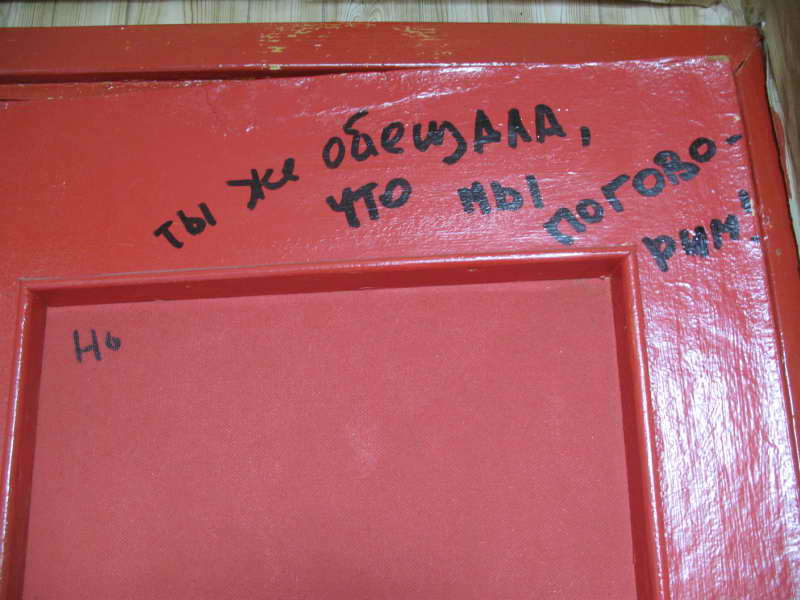 ты же обещала,
что мы погово-
рим!
Но